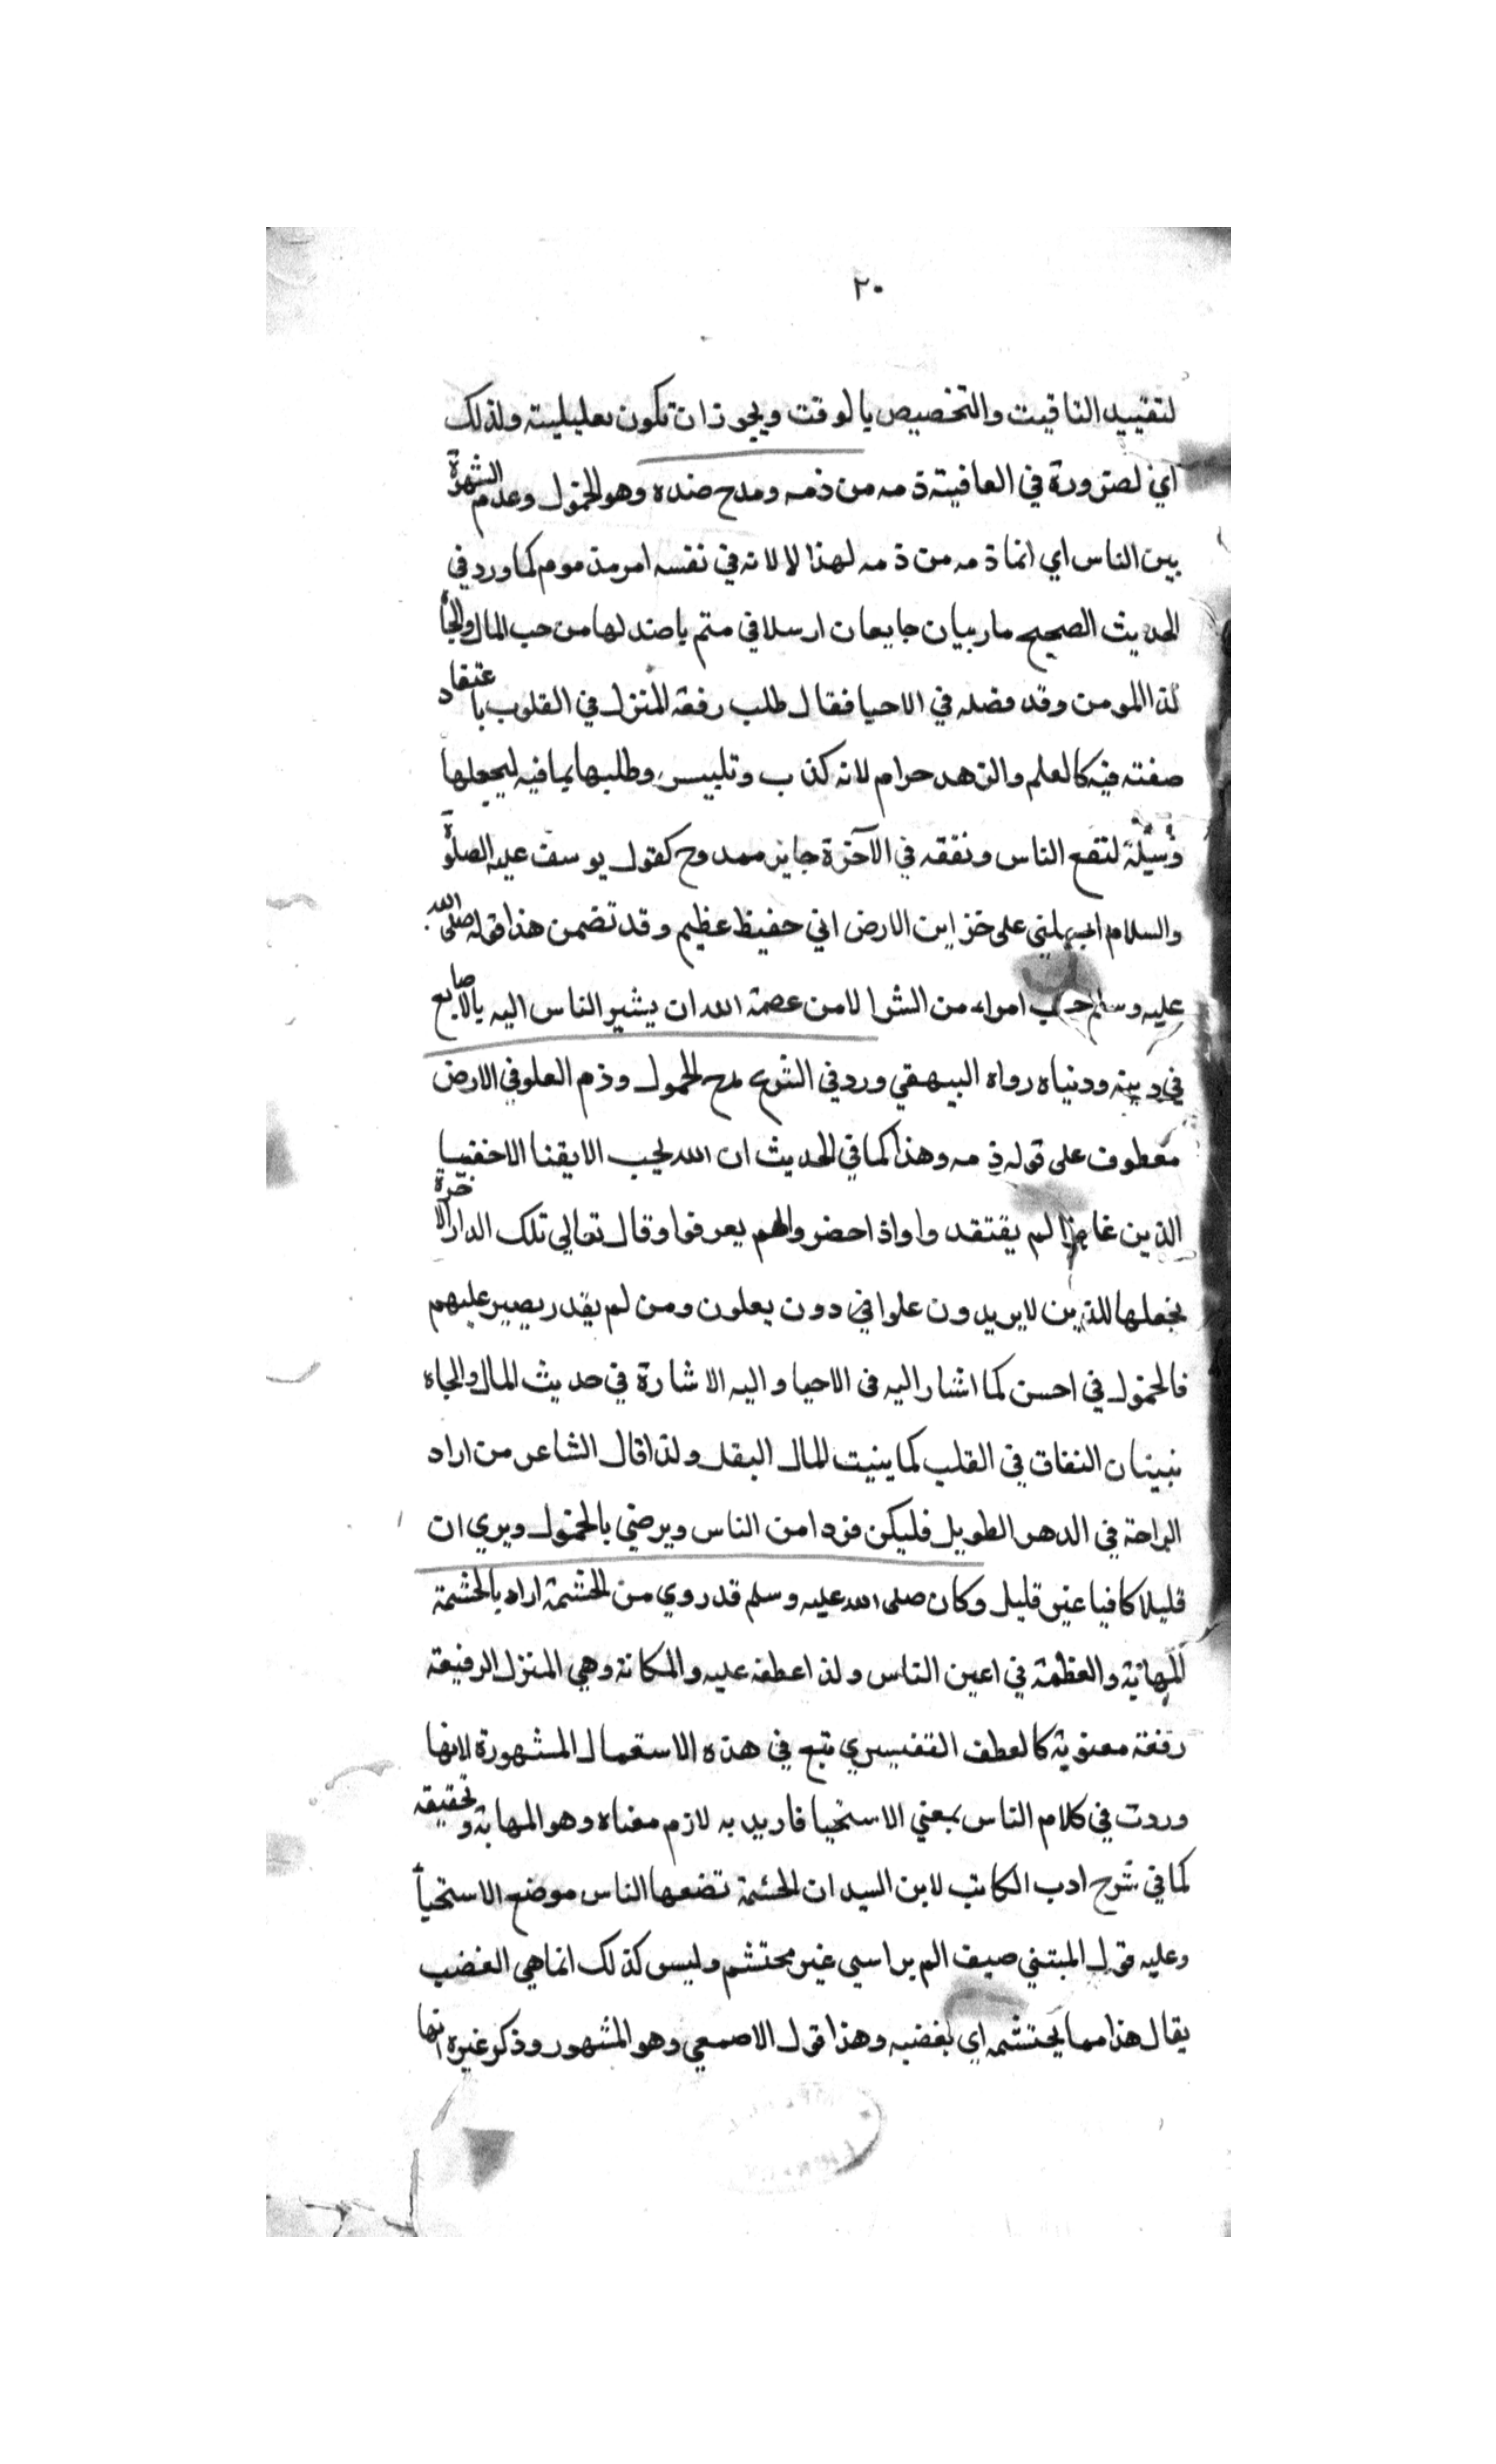 ٢٠
لتقييد التاقيت والتخصيص بالوقت ويجوز ان تكون تعليلية ولذلك
اي لضرورة في العاقبة ذمه من ذمه ومدح ضده وهو الخمول وعدم الشهرة
بين الناس اي انما ذمه من ذمه لهذا لا لانه في نفسه امر مذموم كما ورد في
الحديث الصحيح ما ربيان جايعان ارسلا في متم باضد لها من حب المال والجا
لذا المومن وقد فضله في الاحيا فقال طلب رفعة المنزل في القلوب باعتقاد
صفته فيه كالعلم والزهد حرام لانه كذب وتلبيس وطلبها بما فيه ليجعلها
وسيلة لنفع الناس ونفقه في الآخرة جايز ممدوح كقول يوسف عليه الصلوة
والسلام اجعلني على خزاين الارض اني حفيظ عظيم وقد تضمن هذا قوله صلى الله
عليه وسلم حسب امراء من الشر الا من عصمة الله ان يشير الناس اليه بالاصابع
في دينه ودنياه رواه البيهقي وورد في الشرع مدح الخمول وذم العلو في الارض
معطوف على قوله ذمه وهذا كما في الحديث ان الله يحب الاتقنا الاخفيا
الذين غابوا لم يفتقدوا واذا حضروا لم يعرفوا وقال تعالى تلك الدار الاخرة
نجعلها للذين لا يريدون علوا في دون يعلون ومن لم يقدر يصير عليهم
فالخمول في احسن كما اشار اليه في الاحيا واليه الاشارة في حديث المال والجاه
ينبتان النفاق في القلب كما ينبت المال البقل ولذا قال الشاعر من اراد
الراحة في الدهر الطويل فليكن فردا من الناس ويرضي بالخمول ويري ان
قليلا كافيا غير قليل وكان صلى الله عليه وسلم قد روي من الحشمة اراد بالحشمة
المهانة والعظمة في اعين الناس ولذا عطف عليه والمكانة وهي المنزل الرفيعة
رفعة معنوية كالعطف التفسيري تبع في هذه الاستعمال المشهورة لانها
وردت في كلام الناس بمعني الاستحيا فاريد به لازم معناه وهو المهابة وتحقيقه
كما في شرح ادب الكاتب لابن السيد ان الحشمة تضعها الناس موضع الاستحيا
وعليه قول المتنبي ضيف الم براسي غير محتشم وليس كذلك انما هي الغضب
يقال هذا مما يحتشمه اي يغضبه وهذا قول الاصمعي وهو المشهور وذكر غيره انها